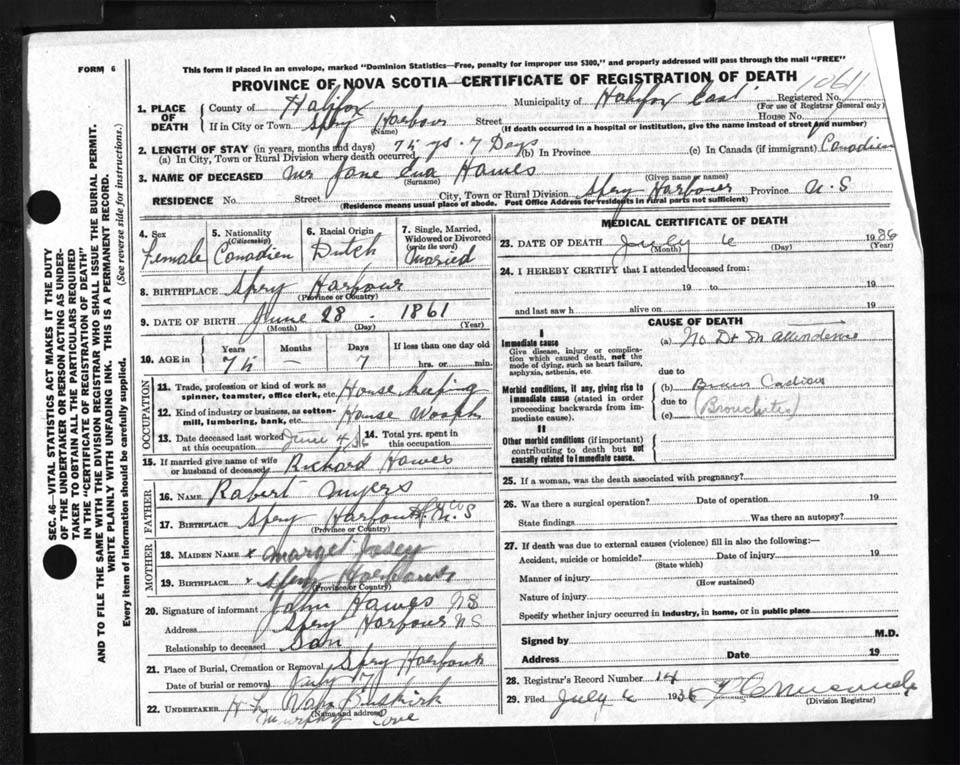 FORM 6
This form if placed in an envelope, marked "Dominion Statistics—Free, penalty for improper use $300," and properly addressed will pass through the mail "FREE"
PROVINCE OF NOVA SCOTIA—CERTIFICATE OF REGISTRATION OF DEATH
1. PLACE OF DEATH County of Halifax Municipality of Halifax East Registered No. 1061
(For use of Registrar General only)
If in City or Town Spery Harbour Street House No.
(Name) (If death occurred in a hospital or institution, give the name instead of street and number)
2. LENGTH OF STAY (in years, months and days)
(a) In City, Town or Rural Division where death occurred 75 ys. 7 Days (b) In Province (c) In Canada (if immigrant) Canadien
3. NAME OF DECEASED Mr Jane Eva Hawes
(Surname) (Given name or names)
RESIDENCE No. Street City, Town or Rural Division Spery Harbour Province N.S
(Residence means usual place of abode. Post Office Address for residents in rural parts not sufficient)
4. Sex Female
5. Nationality (Citizenship) Canadien
6. Racial Origin Dutch
7. Single, Married, Widowed or Divorced (write the word) Married
8. BIRTHPLACE Spery Harbour
(Province or Country)
9. DATE OF BIRTH June 28 1861
(Month) (Day) (Year)
10. AGE in Years 75 Months Days 7 If less than one day old hrs. or min.
OCCUPATION
11. Trade, profession or kind of work as spinner, teamster, office clerk, etc. House keeping
12. Kind of industry or business, as cotton-mill, lumbering, bank, etc. House
13. Date deceased last worked at this occupation June 4
14. Total yrs. spent in this occupation
15. If married give name of wife or husband of deceased Richard Hawes
FATHER
16. NAME Robert Myers
17. BIRTHPLACE Spery Harbour N.S
(Province or Country)
MOTHER
18. MAIDEN NAME x Marget
19. BIRTHPLACE x Spery Harbour
(Province or Country)
20. Signature of informant John Hawes NS
Address Spery Harbour NS
Relationship to deceased Son
21. Place of Burial, Cremation or Removal Spery Harbour
Date of burial or removal July 7
22. UNDERTAKER H L Van Buskirk
(Name and address)
Murphy Cove
MEDICAL CERTIFICATE OF DEATH
23. DATE OF DEATH July 6 1936
(Month) (Day) (Year)
24. I HEREBY CERTIFY that I attended deceased from:
19 to 19
and last saw h alive on 19
CAUSE OF DEATH
I
Immediate cause
Give disease, injury or complication which caused death, not the mode of dying, such as heart failure, asphyxia, asthenia, etc.
(a) No Dr in attendence
due to
Morbid conditions, if any, giving rise to immediate cause (stated in order proceeding backwards from immediate cause).
(b)
due to
(c) (Bronchites)
II
Other morbid conditions (if important) contributing to death but not causally related to immediate cause.
25. If a woman, was the death associated with pregnancy?
26. Was there a surgical operation? Date of operation 19
State findings Was there an autopsy?
27. If death was due to external causes (violence) fill in also the following:—
Accident, suicide or homicide? Date of injury 19
(State which)
Manner of injury
(How sustained)
Nature of injury
Specify whether injury occurred in industry, in home, or in public place
Signed by M.D.
Address Date 19
28. Registrar's Record Number 14
29. Filed July 6 1936
(Division Registrar)
SEC. 46—VITAL STATISTICS ACT MAKES IT THE DUTY
OF THE UNDERTAKER OR PERSON ACTING AS UNDER-
TAKER TO OBTAIN ALL THE PARTICULARS REQUIRED
IN THE "CERTIFICATE OF REGISTRATION OF DEATH"
AND TO FILE THE SAME WITH THE DIVISION REGISTRAR WHO SHALL ISSUE THE BURIAL PERMIT.
WRITE PLAINLY WITH UNFADING INK. THIS IS A PERMANENT RECORD.
Every item of information should be carefully supplied. (See reverse side for instructions.)